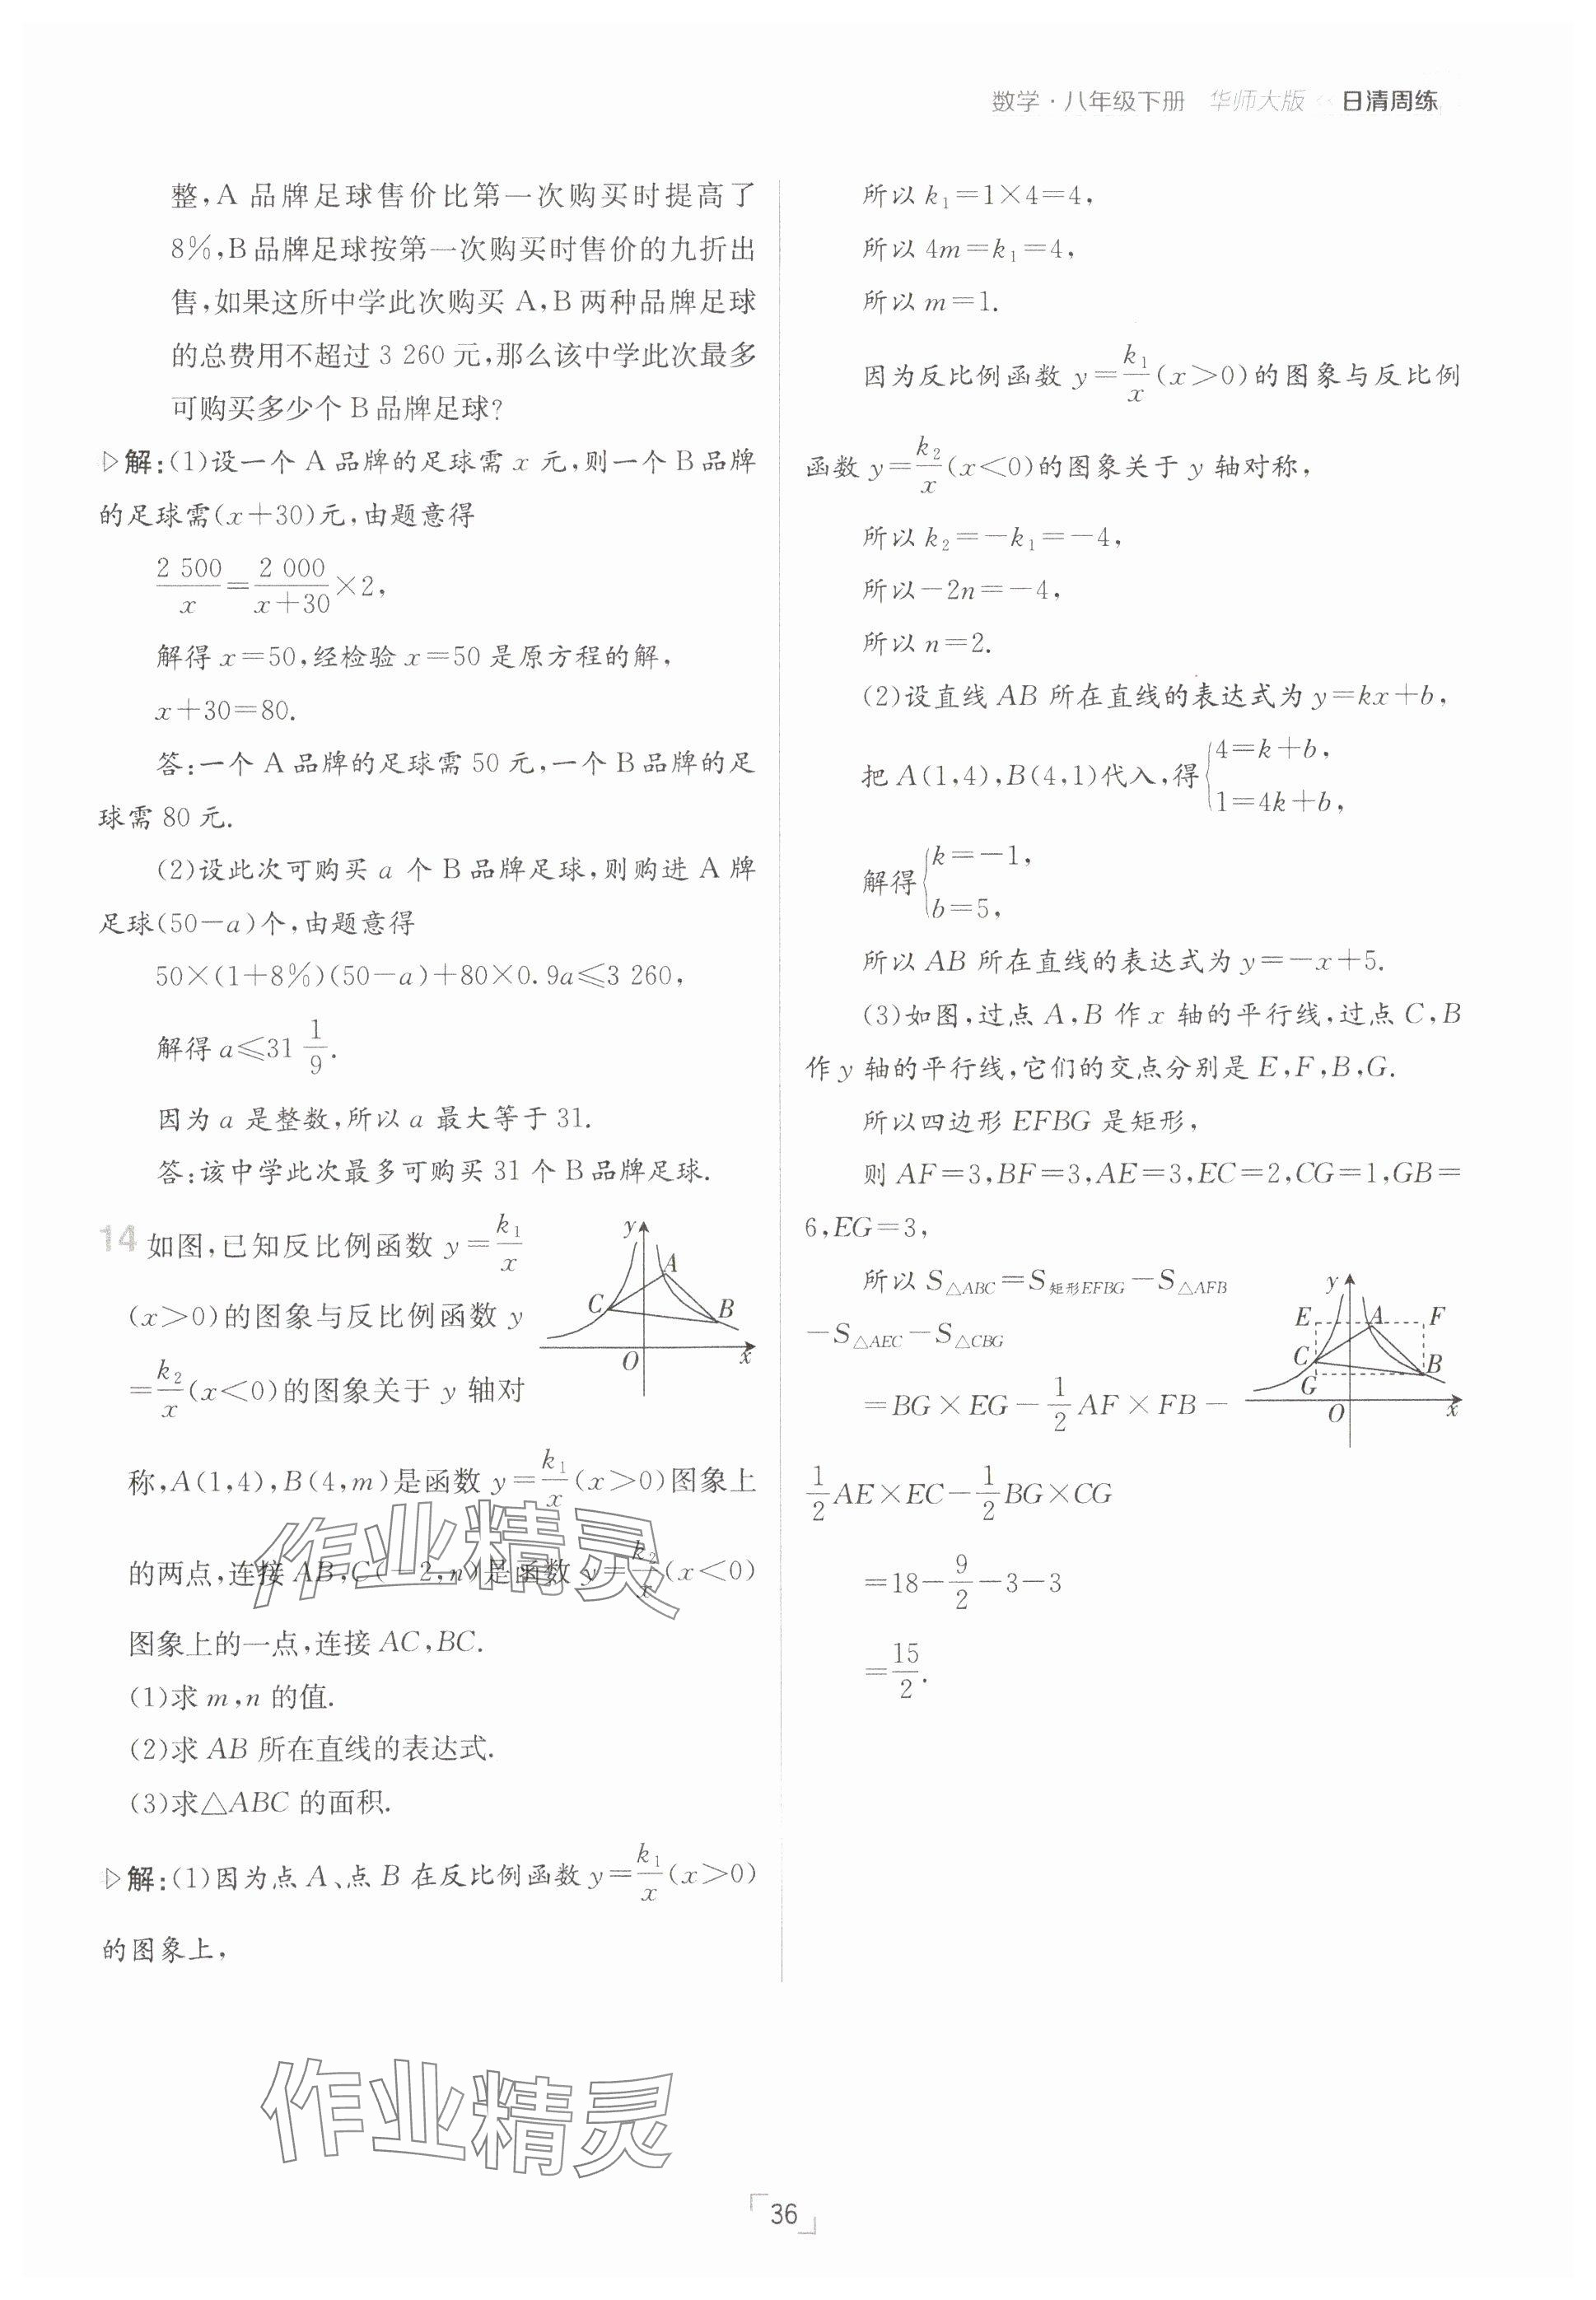 数学·八年级下册 华师大版 日清周练
整,A 品牌足球售价比第一次购买时提高了
8%,B品牌足球按第一次购买时售价的九折出
售,如果这所中学此次购买 A,B 两种品牌足球
的总费用不超过 3 260 元,那么该中学此次最多
可购买多少个 B 品牌足球?
▷解:(1)设一个 A 品牌的足球需 x 元,则一个 B 品牌
的足球需(x+30)元,由题意得
2 500/x=2 000/(x+30)×2,
解得 x=50,经检验 x=50 是原方程的解,
x+30=80.
答:一个 A 品牌的足球需 50 元,一个 B 品牌的足
球需 80 元.
(2)设此次可购买 a 个 B 品牌足球,则购进 A 牌
足球(50-a)个,由题意得
50×(1+8%)(50-a)+80×0.9a≤3 260,
解得 a≤31 1/9.
因为 a 是整数,所以 a 最大等于 31.
答:该中学此次最多可购买 31 个 B 品牌足球.
14 如图,已知反比例函数 y=k₁/x
(x>0)的图象与反比例函数 y
=k₂/x(x<0)的图象关于 y 轴对
称,A(1,4),B(4,m)是函数 y=k₁/x(x>0)图象上
的两点,连接 AB,C(-2,n)是函数 y=k₂/x(x<0)
图象上的一点,连接 AC,BC.
(1)求 m,n 的值.
(2)求 AB 所在直线的表达式.
(3)求△ABC 的面积.
y
A
C
B
O
x
▷解:(1)因为点 A、点 B 在反比例函数 y=k₁/x(x>0)
的图象上,
所以 k₁=1×4=4,
所以 4m=k₁=4,
所以 m=1.
因为反比例函数 y=k₁/x(x>0)的图象与反比例
函数 y=k₂/x(x<0)的图象关于 y 轴对称,
所以 k₂=-k₁=-4,
所以-2n=-4,
所以 n=2.
(2)设直线 AB 所在直线的表达式为 y=kx+b,
把 A(1,4),B(4,1)代入,得{4=k+b,
1=4k+b,
解得{k=-1,
b=5,
所以 AB 所在直线的表达式为 y=-x+5.
(3)如图,过点 A,B 作 x 轴的平行线,过点 C,B
作 y 轴的平行线,它们的交点分别是 E,F,B,G.
所以四边形 EFBG 是矩形,
则 AF=3,BF=3,AE=3,EC=2,CG=1,GB=
6,EG=3,
所以 S△ABC=S矩形EFBG-S△AFB
-S△AEC-S△CBG
=BG×EG-1/2 AF×FB-
1/2 AE×EC-1/2 BG×CG
=18-9/2-3-3
=15/2.
y
E
A
F
C
B
G
O
x
作业精灵
作业精灵
36